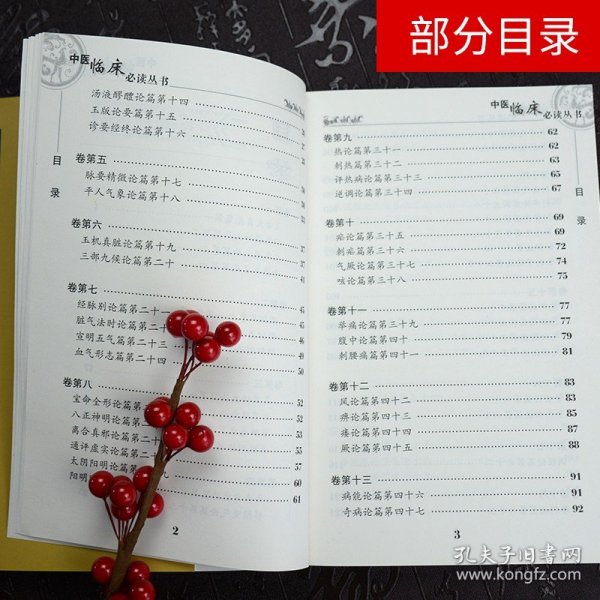 部分目录
中医临床必读丛书
汤液醪醴论篇第十四
玉版论要篇第十五
诊要经终论篇第十六
目录
卷第五
脉要精微论篇第十七
平人气象论篇第十八
卷第六 37
玉机真脏论篇第十九 37
三部九候论篇第二十 41
卷第七 45
经脉别论篇第二十一 45
脏气法时论篇第二十
宣明五气篇第二十三
血气形志篇第二十四 50
卷第八 52
宝命全形论篇第
八正神明论篇第
离合真邪论篇第二十
通评虚实论篇第二十 57
太阴阳明论篇第 60
阳明 61
2
中医临床必读丛书
卷第九 62
热论篇第三十一 62
刺热篇第三十二 63
评热病论篇第三十三 65
逆调论篇第三十四 67
目录
卷第十 69
疟论篇第三十五 69
刺疟篇第三十六 72
气厥论篇第三十七 74
咳论篇第三十八 75
卷第十一 77
举痛论篇第三十九 77
腹中论篇第四十 79
刺腰痛篇第四十一 81
卷第十二 83
风论篇第四十二 83
痹论篇第四十三 85
痿论篇第四十四 87
厥论篇第四十五 88
卷第十三 91
病能论篇第四十六 91
奇病论篇第四十七 92
3
孔夫子旧书网
www.kongfz.com